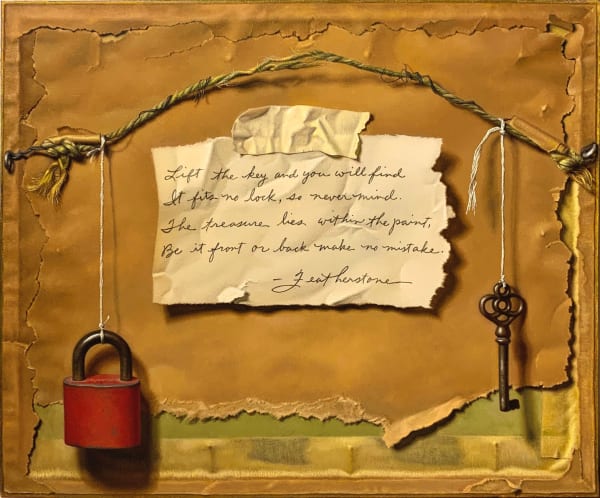 Lift the key and you will find
It fits no lock, so never mind.
The treasure lies within the paint,
Be it front or back make no mistake.
- Featherstone